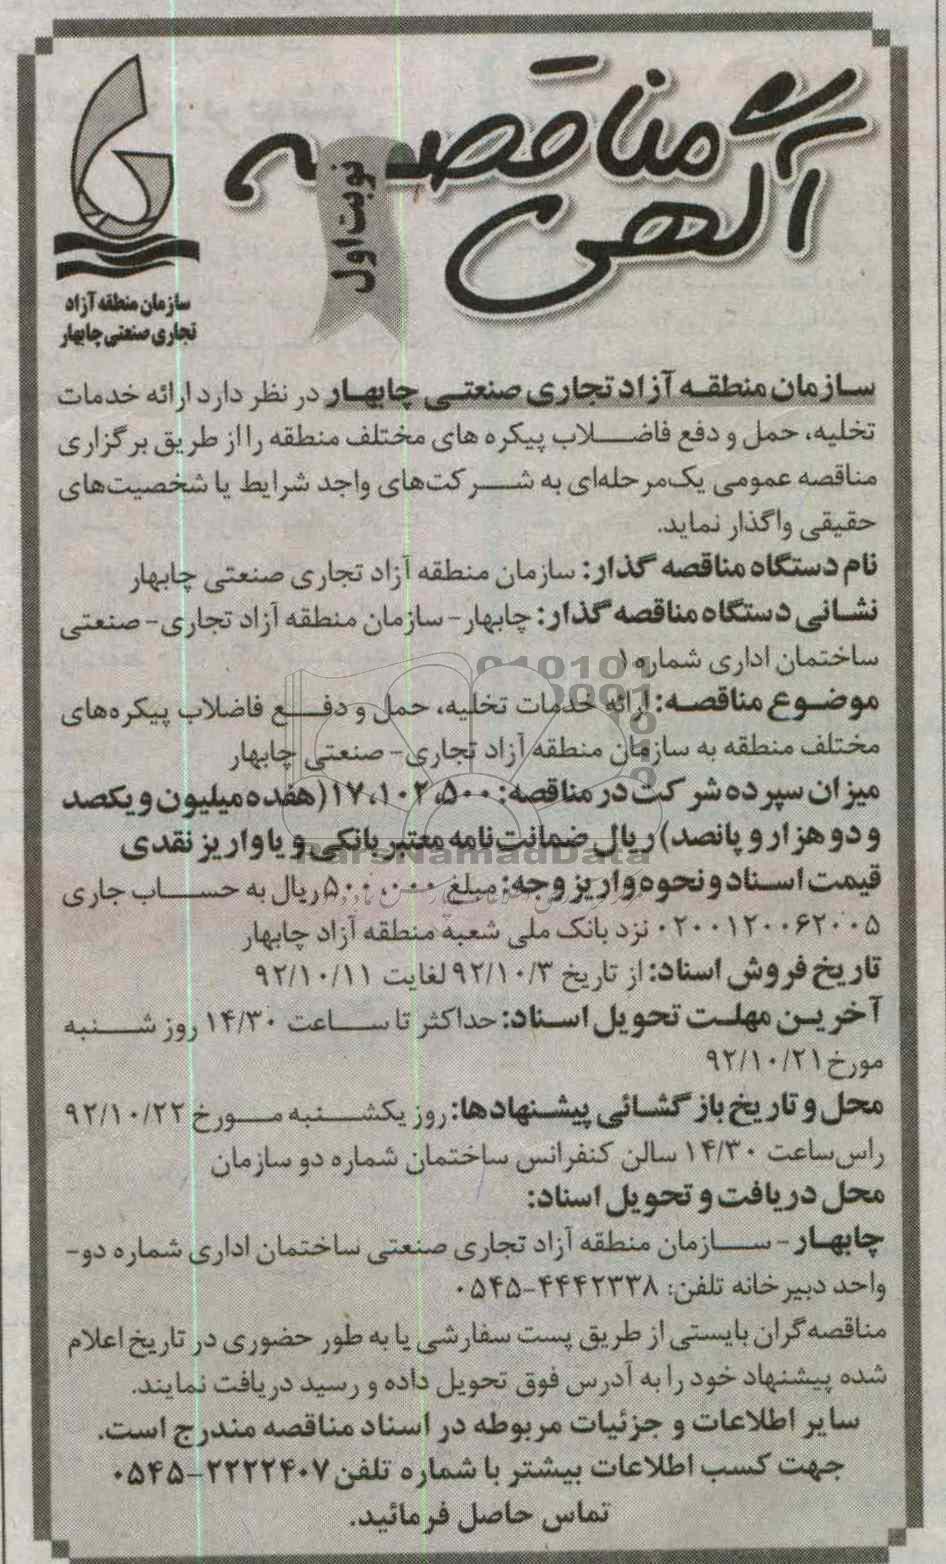 آگهی مناقصه
نوبت اول
سازمان منطقه آزاد
تجاری صنعتی چابهار
سازمان منطقه آزاد تجاری صنعتی چابهار در نظر دارد ارائه خدمات
تخلیه، حمل و دفع فاضلاب پیکره های مختلف منطقه را از طریق برگزاری
مناقصه عمومی یک‌مرحله‌ای به شرکت‌های واجد شرایط یا شخصیت‌های
حقیقی واگذار نماید.
نام دستگاه مناقصه گذار: سازمان منطقه آزاد تجاری صنعتی چابهار
نشانی دستگاه مناقصه گذار: چابهار- سازمان منطقه آزاد تجاری- صنعتی
ساختمان اداری شماره ۱
موضوع مناقصه: ارائه خدمات تخلیه، حمل و دفع فاضلاب پیکره‌های
مختلف منطقه به سازمان منطقه آزاد تجاری- صنعتی چابهار
میزان سپرده شرکت در مناقصه: ۱۷،۱۰۲،۵۰۰ (هفده میلیون و یکصد
و دو هزار و پانصد) ریال ضمانت‌نامه معتبر بانکی و یا واریز نقدی
قیمت اسناد و نحوه واریز وجه: مبلغ ۵۰۰،۰۰۰ ریال به حساب جاری
۰۲۰۰۱۲۰۰۶۲۰۰۵ نزد بانک ملی شعبه منطقه آزاد چابهار
تاریخ فروش اسناد: از تاریخ ۹۲/۱۰/۳ لغایت ۹۲/۱۰/۱۱
آخرین مهلت تحویل اسناد: حداکثر تا ساعت ۱۴/۳۰ روز شنبه
مورخ ۹۲/۱۰/۲۱
محل و تاریخ بازگشائی پیشنهادها: روز یکشنبه مورخ ۹۲/۱۰/۲۲
راس ساعت ۱۴/۳۰ سالن کنفرانس ساختمان شماره دو سازمان
محل دریافت و تحویل اسناد:
چابهار- سازمان منطقه آزاد تجاری صنعتی ساختمان اداری شماره دو-
واحد دبیرخانه تلفن: ۴۴۴۲۳۳۸-۰۵۴۵
مناقصه‌گران بایستی از طریق پست سفارشی یا به طور حضوری در تاریخ اعلام
شده پیشنهاد خود را به آدرس فوق تحویل داده و رسید دریافت نمایند.
سایر اطلاعات و جزئیات مربوطه در اسناد مناقصه مندرج است.
جهت کسب اطلاعات بیشتر با شماره تلفن ۲۲۲۲۴۰۷-۰۵۴۵
تماس حاصل فرمائید.
ParsNamadData